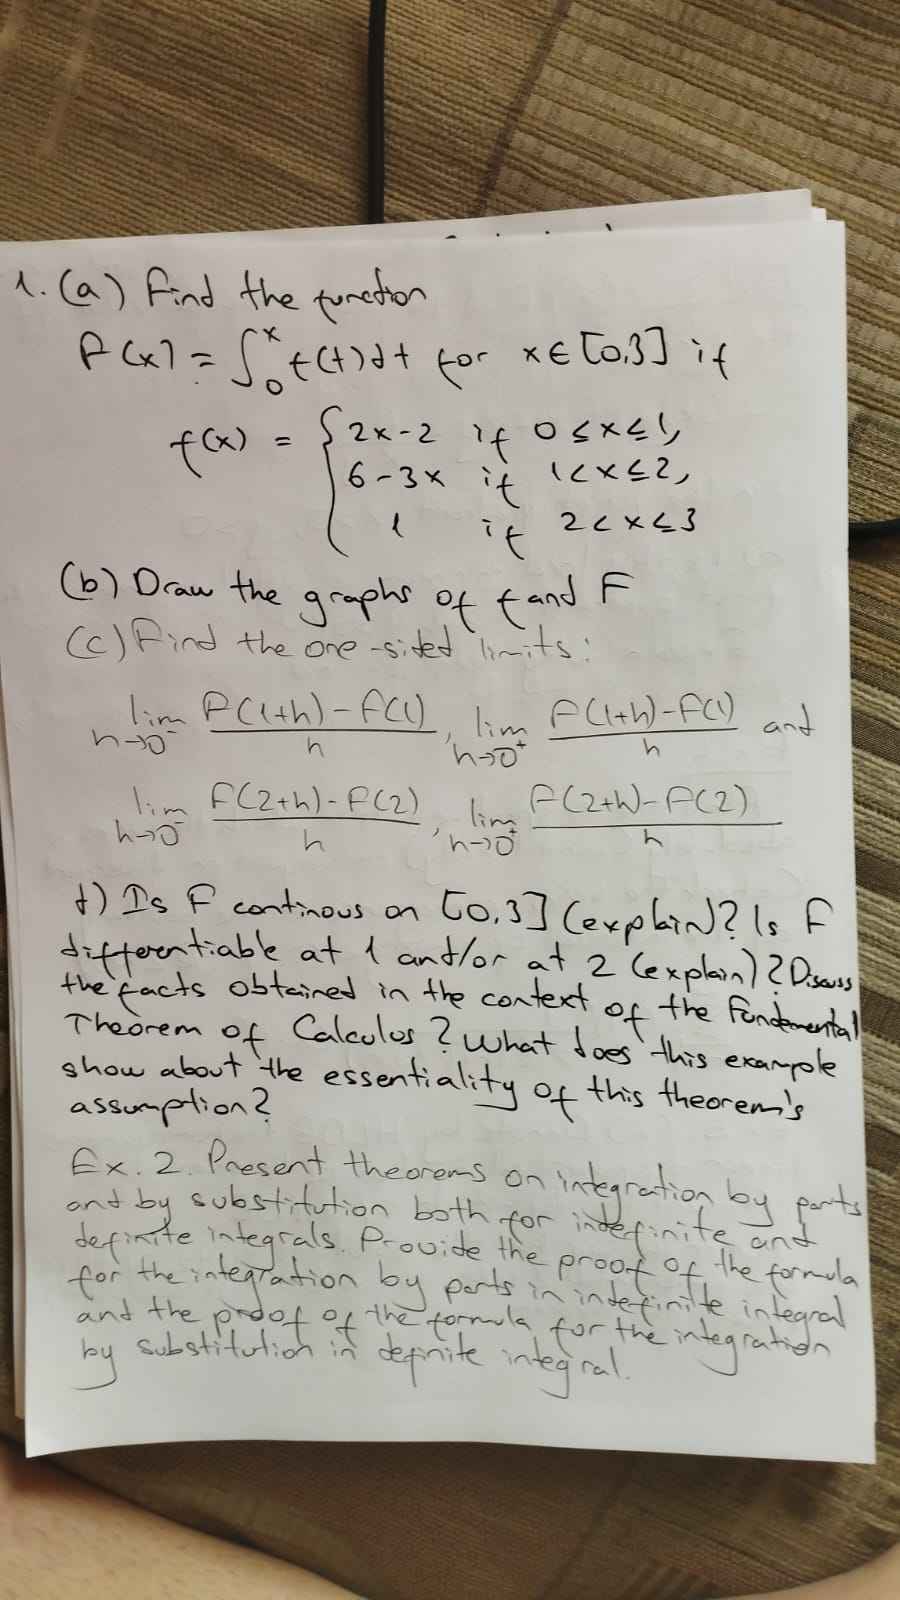 1. (a) Find the function
F(x) = ∫₀ˣ f(t)dt for x∈[0,3] if
f(x) = { 2x-2 if 0≤x≤1,
6-3x if 1<x≤2,
1 if 2<x≤3
(b) Draw the graphs of f and F
(c) Find the one-sided limits:
lim h→0⁻ (F(1+h)-F(1))/h , lim h→0⁺ (F(1+h)-F(1))/h and
lim h→0⁻ (F(2+h)-F(2))/h , lim h→0⁺ (F(2+h)-F(2))/h
d) Is F continous on [0,3] (explain)? Is F
differentiable at 1 and/or at 2 (explain)? Discuss
the facts obtained in the context of the Fundemental
Theorem of Calculus? What does this example
show about the essentiality of this theorem's
assumption?
Ex. 2. Present theorems on integration by parts
and by substitution both for indefinite and
definite integrals. Provide the proof of the formula
for the integration by parts in indefinite integral
and the proof of the formula for the integration
by substitution in definite integral.